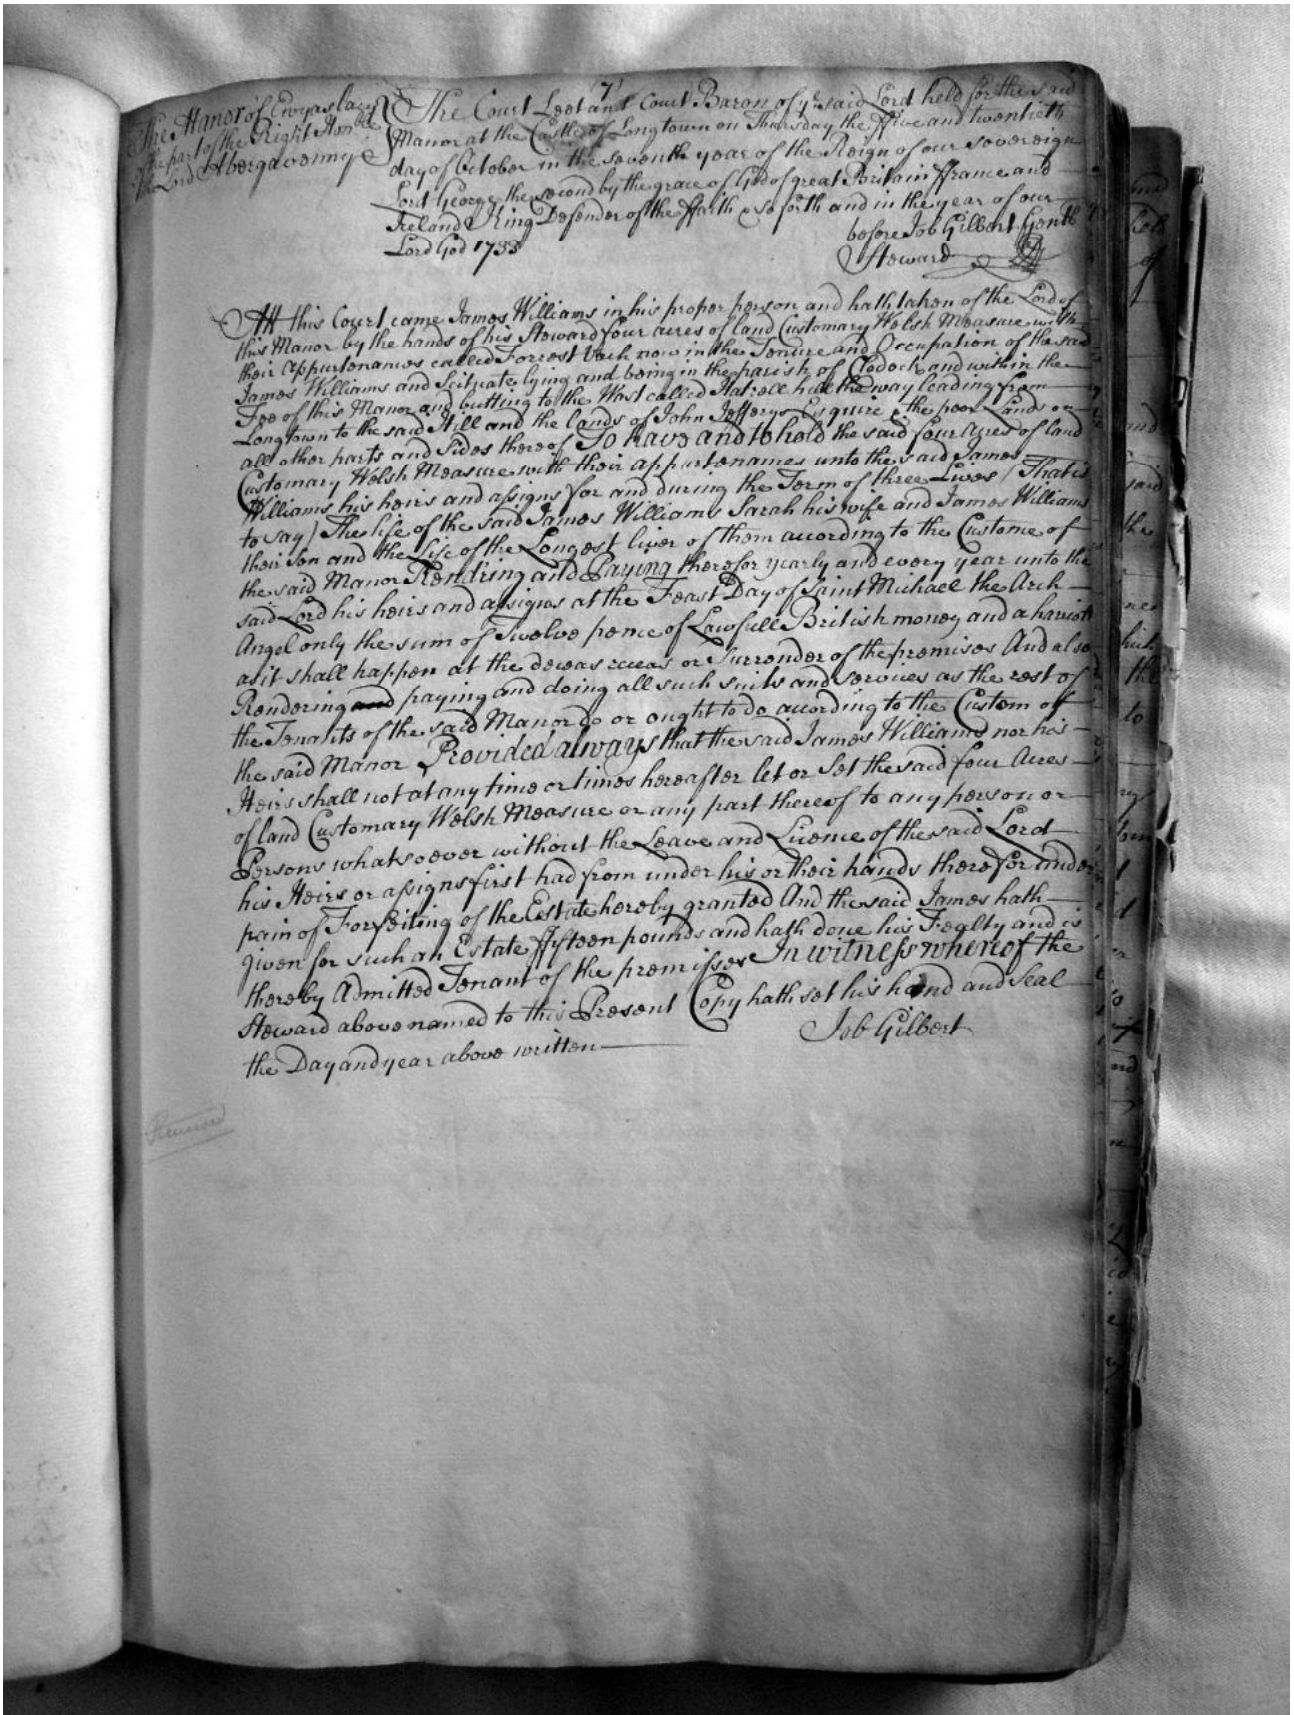 7
The Manor of Ewyaslacy
of the part of the Right Honble
the Lord Abergavenny
The Court Leet and Court Baron of ye said Lord held for the said
Manor at the Castle of Longtown on Thursday the ffive and twentieth
day of October in the seventh year of the Reign of our sovereign
Lord George the second by the grace of God of great Britain ffrance and
Ireland King Defender of the ffaith & so forth and in the year of our
Lord God 1733
before Job Gilbert Gentl
Steward
Att this Court came James Williams in his proper person and hath taken of the Lord of
this Manor by the hands of his Steward four acres of land Customary Welsh Measure with
their appurtenances called Forrest Vach now in the Tenure and Occupation of the said
James Williams and Scituate lying and being in the parish of Clodock and within the
Fee of this Manor and butting to the Wast called Hatrell hill the way leading from
Longtown to the said Hill and the lands of John Jefferys Esquire & the poor Lands on
all other parts and sides thereof To have and to hold the said four Acres of land
Customary Welsh Measure with their appurtenances unto the said James
Williams his heirs and assigns for and during the Term of three Lives (That is
to say) The life of the said James Williams Sarah his wife and James Williams
their Son and the Life of the Longest liver of them according to the Custome of
the said Manor Rendring and Paying therefor yearly and every year unto the
said Lord his heirs and assigns at the Feast Day of Saint Michael the Arch
Angel only the sum of Twelve pence of Lawfull British money and a hariott
as it shall happen at the deceas or Surrender of the premises And also
Rendering and paying and doing all such suits and services as the rest of
the Tenants of the said Manor do or ought to do according to the Custom of
the said Manor Provided always that the said James Williams nor his
Heirs shall not at any time or times hereafter let or Set the said four Acres
of land Customary Welsh Measure or any part thereof to any person or
Persons whatsoever without the Leave and Licence of the said Lord
his Heirs or assigns first had from under his or their hands therefor under
pain of Forfeiting of the Estate hereby granted And the said James hath
given for such an Estate ffifteen pounds and hath done his Fealty and is
thereby Admitted Tenant of the premisses In witness whereof the
Steward above named to this Present Copy hath set his hand and Seal
the Day and year above written
Job Gilbert